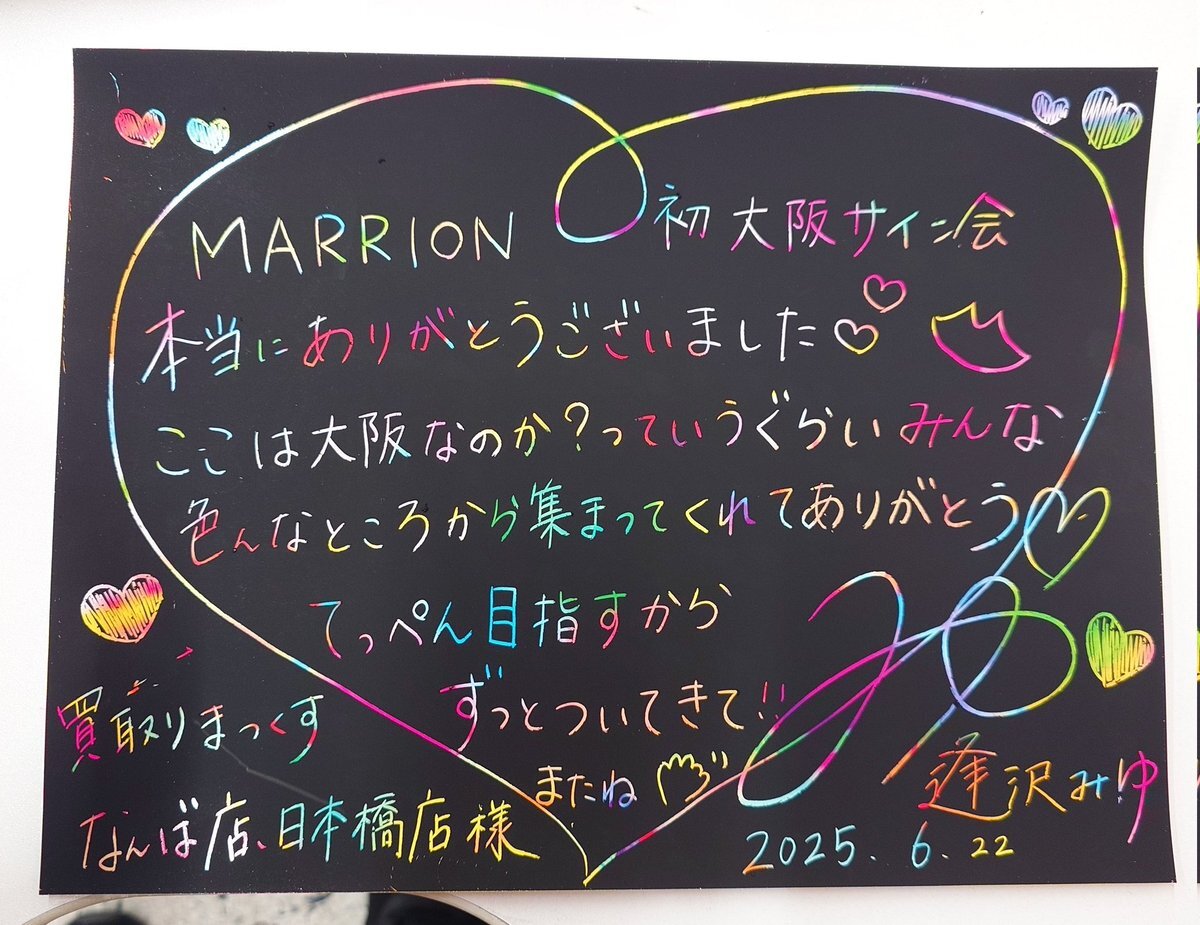 MARRION 初大阪サイン会
本当にありがとうございました
ここは大阪なのか?っていうぐらいみんな
色んなところから集まってくれてありがとう
てっぺん目指すから
ずっとついてきて!!
またね
買取りまっくす
なんば店、日本橋店様
逢沢みゆ
2025. 6. 22